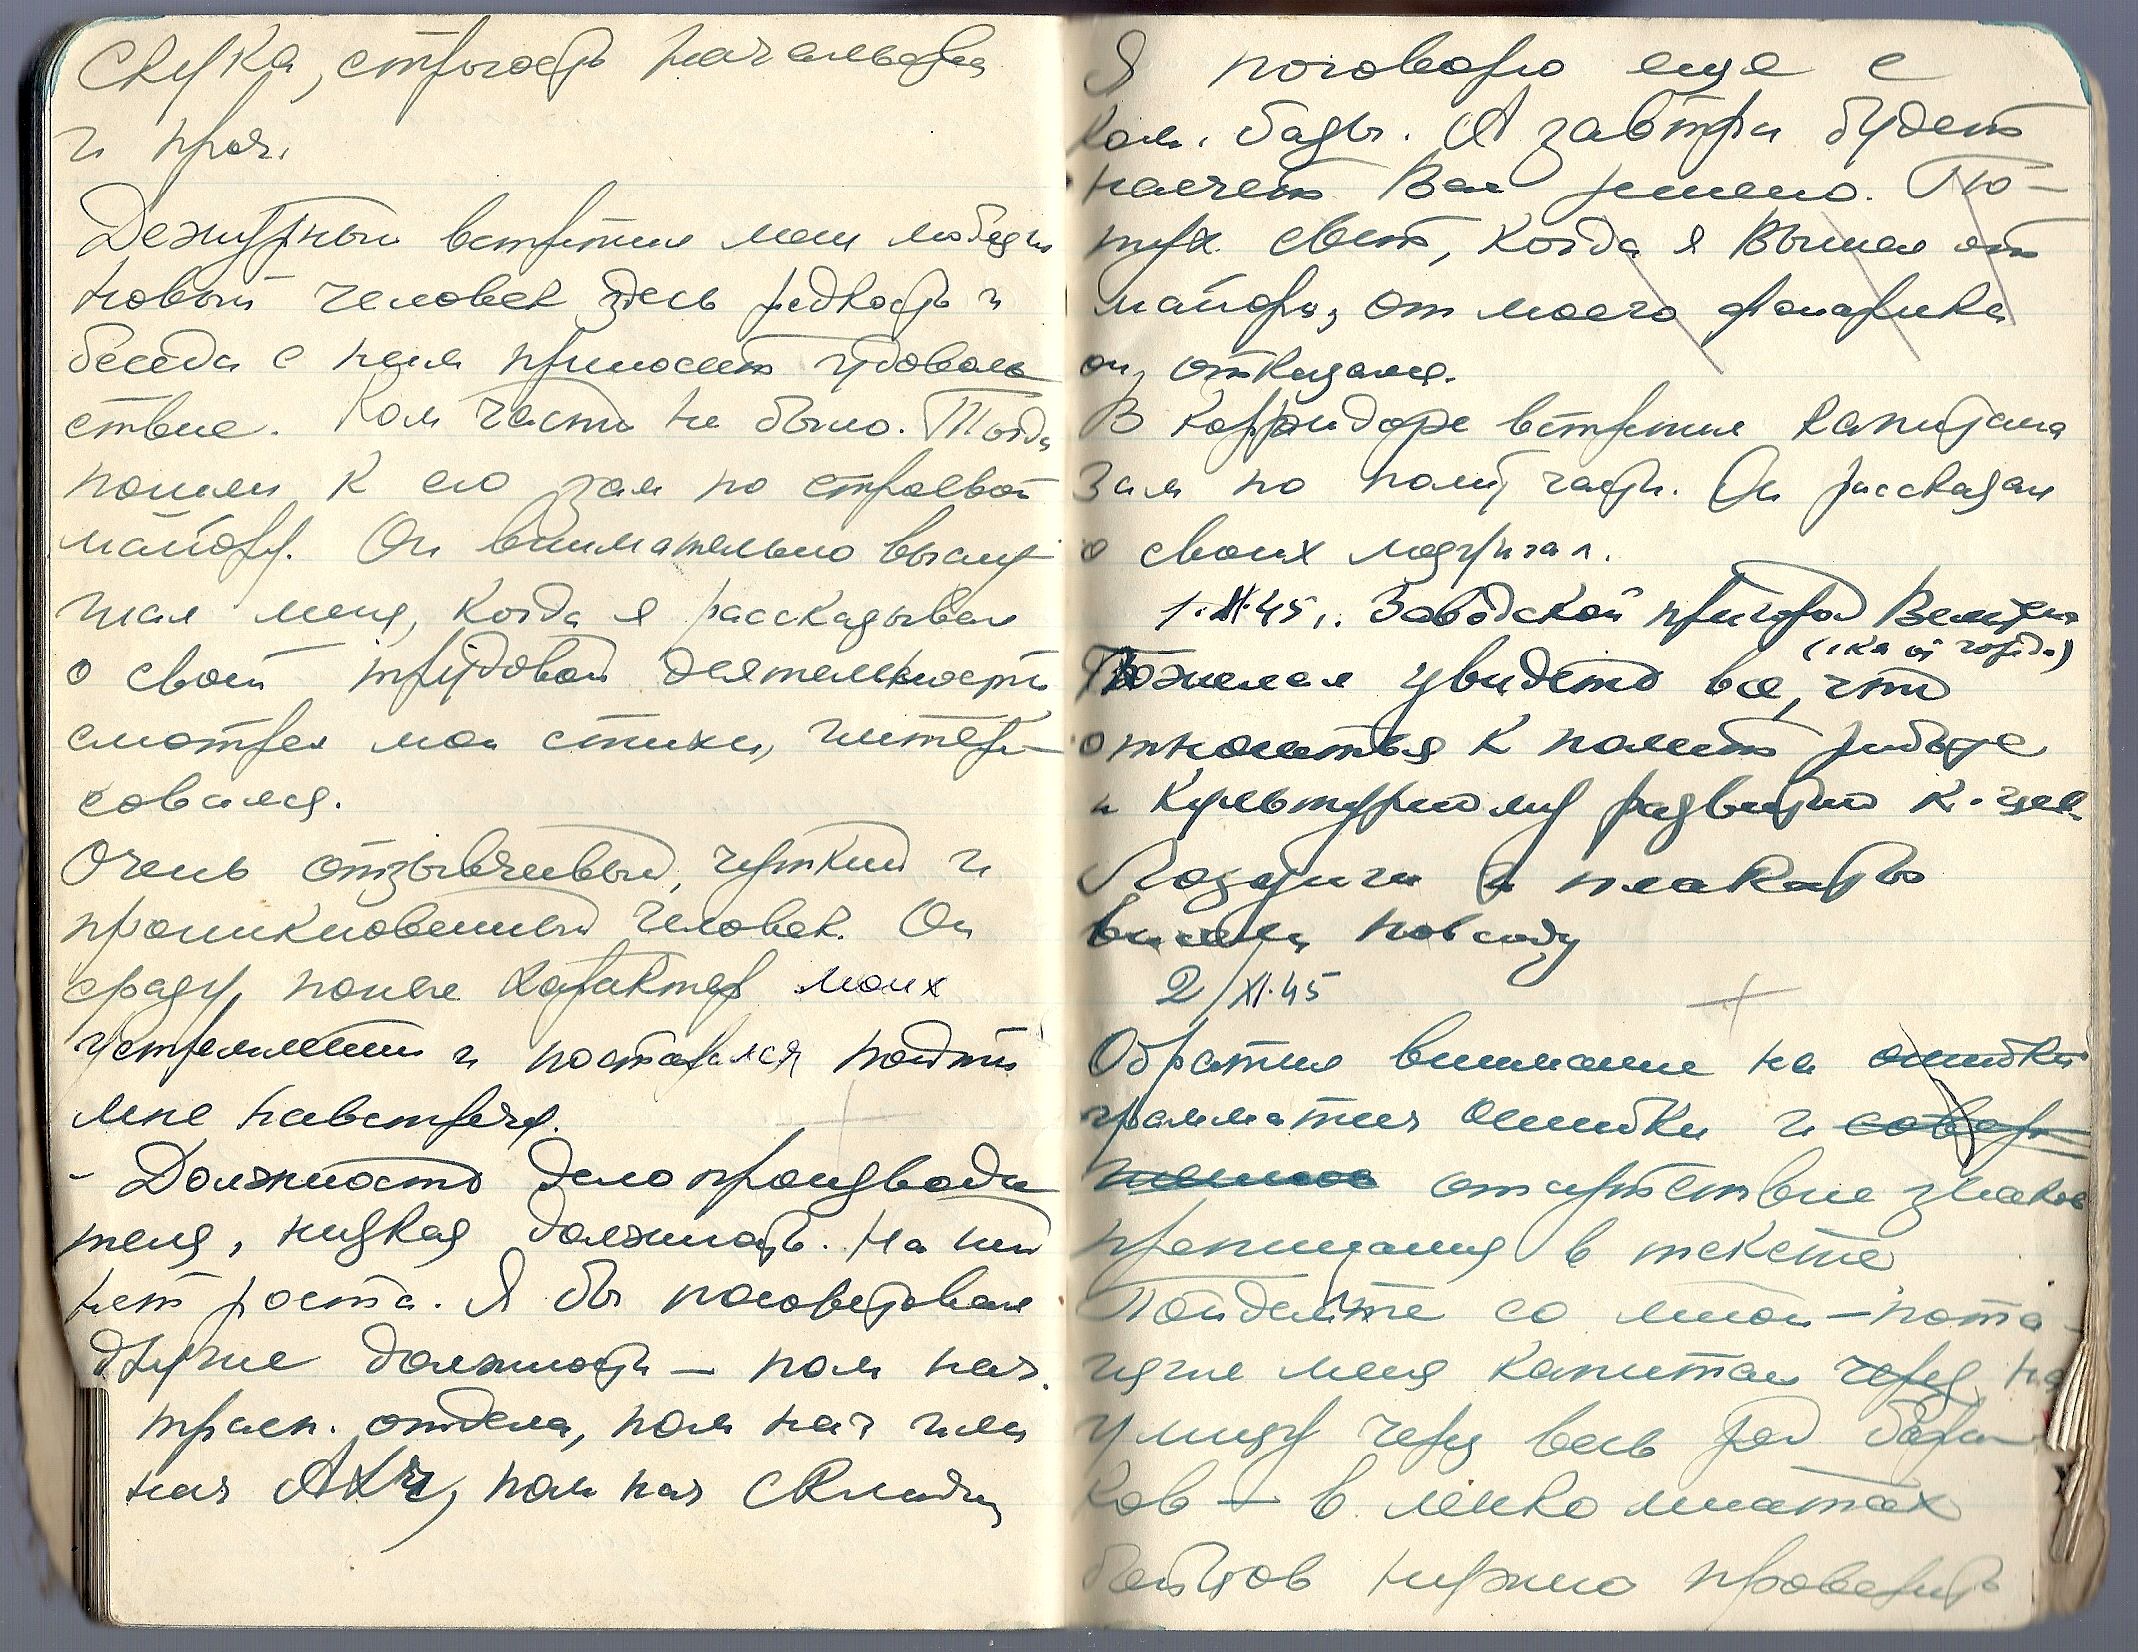 Скука, строгость начальства
и проч.
Дежурный встретил меня любезно
Новый человек здесь редкость и
беседа с ним приносит удоволь
ствие. Ком части не было. Тогда
пошли к его зам по строевой
майору. Он внимательно выслу
шал меня, когда я рассказывал
о своей трудовой деятельности,
смотрел мои стихи, интере-
совался.
Очень отзывчивый, чуткий и
проникновенный человек. Он
сразу понял характер моих
устремлений и постарался пойти
мне навстречу.
- Должность делопроизводи
теля, низкая должность. На ней
нет роста. Я бы посоветовал
другие должности — пом нач.
трасп. отдела, пом нач или
нач АХЧ, пом нач склада
Я поговорю еще с
ком. базы. А завтра будет
насчет Вас решено. По-
тух свет, когда я вышел от
майора, от моего фонарика
он отказался.
В корридоре встретил капитана
зам по полит части. Он рассказал
о своих лозунгах.
1.XI.45 г. Заводской пригород Вельтена
(г. города)
Пожелал увидеть все, что
относиться к полит работе
и культурному развитию к-цев.
Лозунги и плакаты
висели повсюду
2/XI.45
Обратил внимание на ошибки
грамматич ошибки и совер
шенное отсутствие знаков
препинания в тексте
Пойдемте со мной — пота-
щил меня капитан через на
улицу через весь ряд бара
ков — в комнатах
бойцов нужно проверить